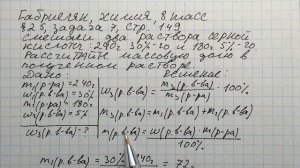 Габриелян, химия, 8 класс
§25, задача 7, стр. 149
Смешали два раствора серной
кислоты: 240г 30%-го и 180г 5%-го.
Рассчитайте массовую долю в
полученном растворе.
Дано: Решение:
m₁(р-ра) = 240г
w₁(р.в-ва) = 30%
m₂(р-ра) = 180г
w₂(р.в-ва) = 5%
w₃(р.в-ва) - ?
w₃(р.в-ва) = m₃(р.в-ва) / m₃(р-ра) · 100%
m₃(р.в-ва) = m₁(р.в-ва) + m₂(р.в-ва)
m(р.в-ва) = w(р.в-ва) · m(р-ра) / 100%
m₁(р.в-ва) = 30% · 240г = 72